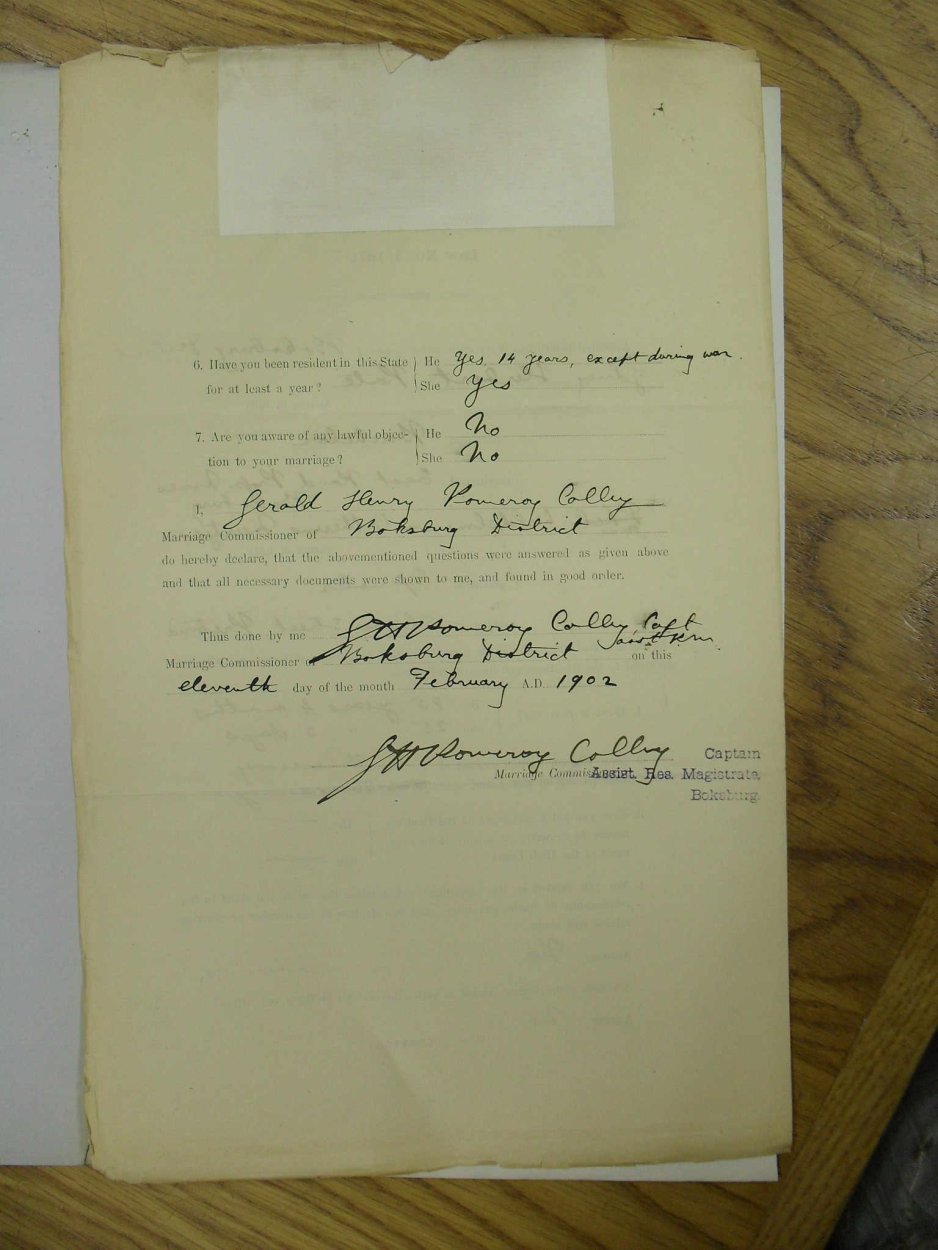 6. Have you been resident in this State } He Yes, 14 years, except during war.
for at least a year? } She Yes
7. Are you aware of any lawful objec- } He No
tion to your marriage? } She No
I, Gerald Henry Pomeroy Colley
Marriage Commissioner of Boksburg District
do hereby declare, that the abovementioned questions were answered as given above
and that all necessary documents were shown to me, and found in good order.
Thus done by me GHPomeroy Colley Capt
Asst R.M.
Marriage Commissioner of Boksburg District on this
eleventh day of the month February A.D. 1902
GHPomeroy Colley
Captain
Marriage Commis
Assist. Res. Magistrate,
Boksburg.